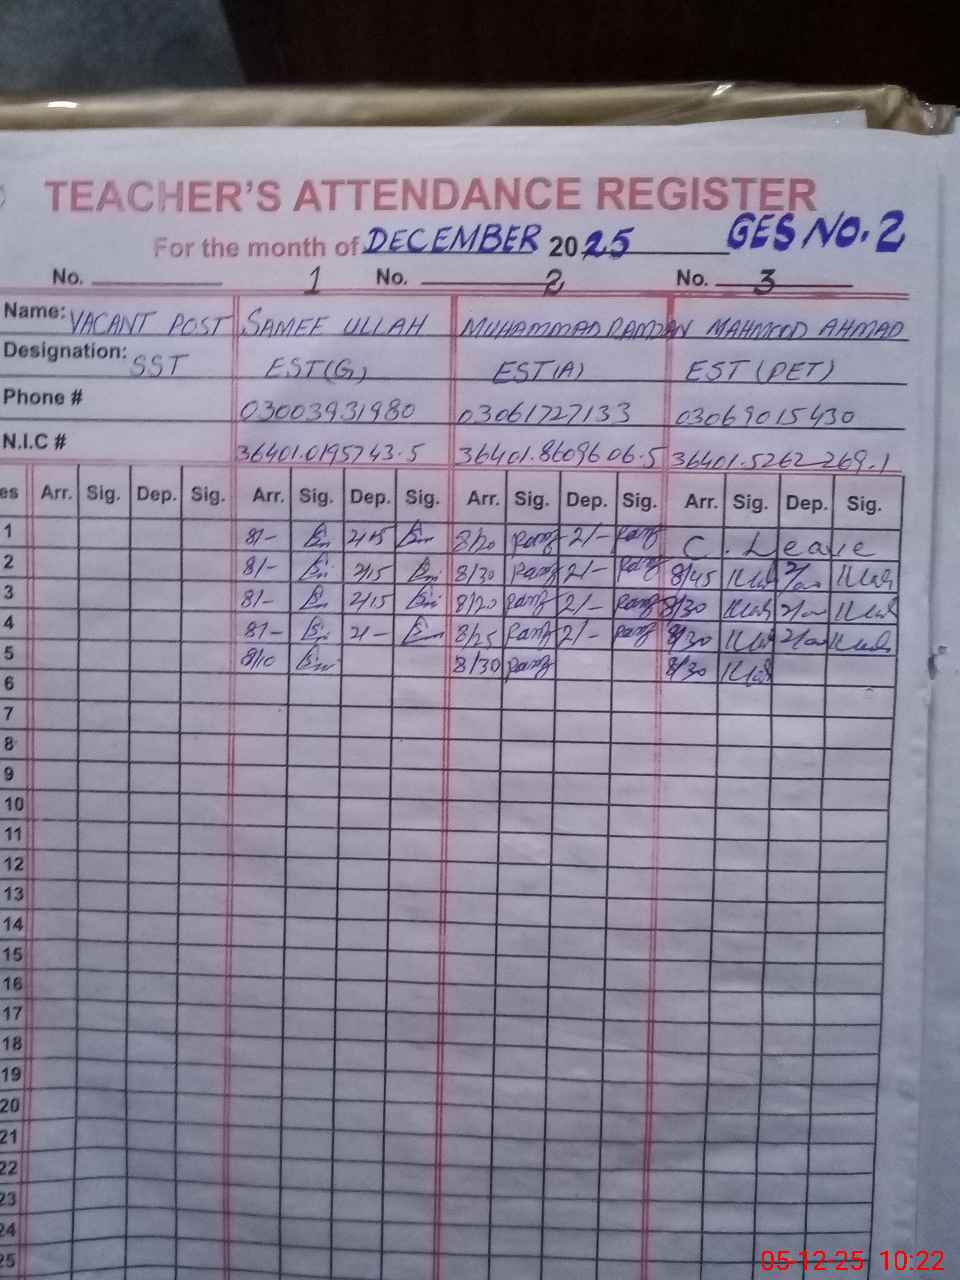 TEACHER'S ATTENDANCE REGISTER
For the month of DECEMBER 2025 GES NO.2
No. 1 No. 2 No. 3
Name: VACANT POST SAMEE ULLAH MUHAMMAD RAMDAN MAHMOOD AHMAD
Designation: SST EST(G) EST(A) EST (PET)
Phone # 03003931980 03061727133 03069015430
N.I.C # 36401.0195743.5 36401.8609606.5 36401.5262269.1
es Arr. Sig. Dep. Sig. Arr. Sig. Dep. Sig. Arr. Sig. Dep. Sig. Arr. Sig. Dep. Sig.
1 8/- 2/15 8/20 2/- C. Leave
2 8/- 2/15 8/30 2/- 8/45 2/00
3 8/- 2/15 8/20 2/- 8/30 2/00
4 8/- 2/- 8/25 2/- 8/30 2/00
5 8/10 8/30 8/30
6
7
8
9
10
11
12
13
14
15
16
17
18
19
20
21
22
23
24
25
05-12-25 10:22